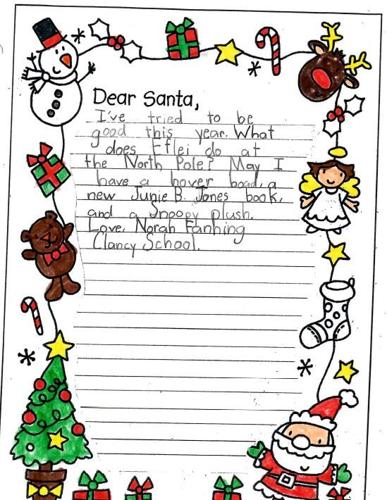 Dear Santa,
I've tried to be
good this year. What
does Eflei do at
the North Pole? May I
have a hover boad, a
new Junie B. Jones book,
and a Snoopy plush.
Love, Norah Fanhing
Clancy School.